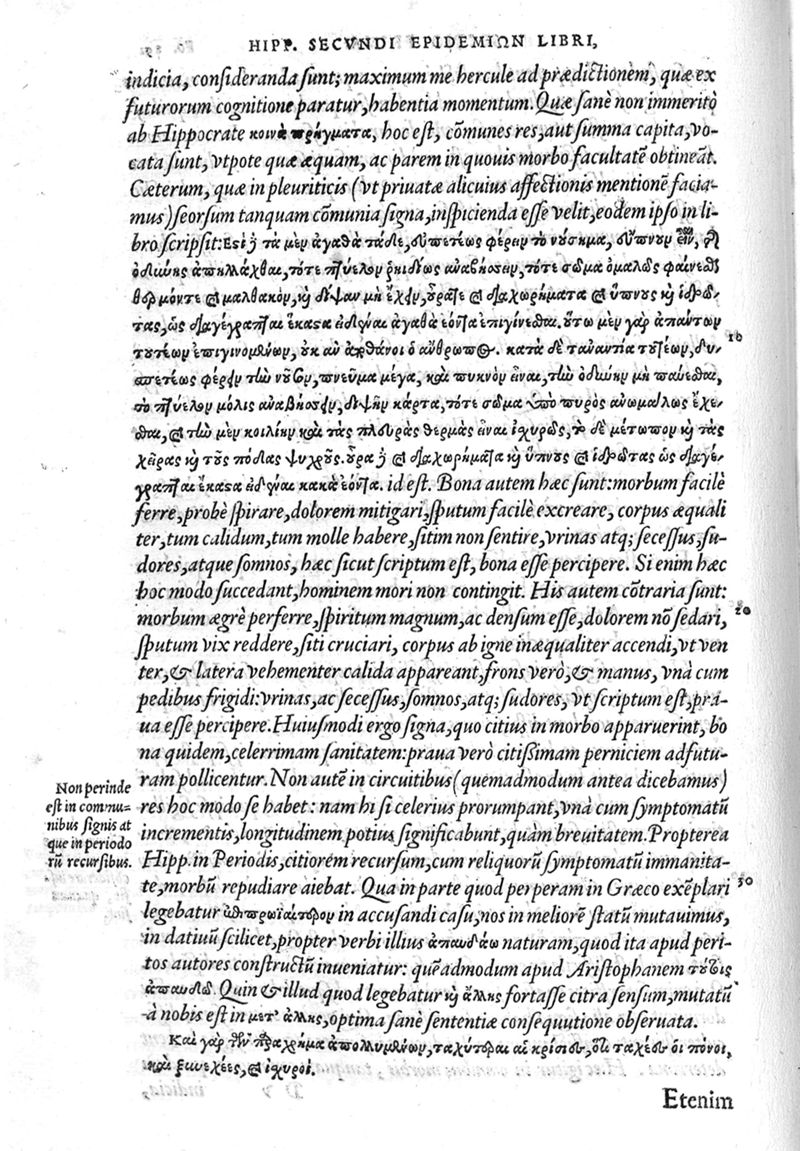 HIPP. SECVNDI EPIDEMIΩN LIBRI,
indicia, consideranda sunt; maximum me hercule ad prædictionem, quæ ex
futurorum cognitione paratur, habentia momentum. Quæ sanè non immeritò
ab Hippocrate κοινὰ πρήγματα, hoc est, cōmunes res, aut summa capita, vo-
cata sunt, vtpote quæ æquam, ac parem in quouis morbo facultatē obtineāt.
Cæterum, quæ in pleuriticis (vt priuatæ alicuius affectionis mentionē facia-
mus) seorsum tanquam cōmunia signa, inspicienda esse velit, eodem ipso in li-
bro scripsit: Εςὶ ἢ τὰ μὲν ἀγαθὰ τάδε, εὐπετέως φέρειν τὸ νούσημα, εὔπνουν εἶναι,
ὀδύνης ἀπηλλάχθαι, τότε πτύελον ῥηϊδίως ἀναβήσσειν, τότε σῶμα ὁμαλῶς φαίνεσθαι
θερμόν τε καὶ μαλθακὸν, καὶ δίψαν μὴ ἔχειν, οὖρά τε καὶ διαχωρήματα καὶ ὕπνους καὶ ἱδρῶ-
τας, ὡς διαγέγραπται ἕκαςα εἰδέναι ἀγαθὰ ἐόντα ἐπιγίνεσθαι. οὕτω μὲν γὰρ ἁπάντων
τουτέων ἐπιγινομένων, οὐκ ἂν ἀποθάνοι ὁ ἄνθρωπος. κατὰ δὲ τἀναντία τουτέων, δυ-
10
σπετέως φέρειν τὴν νοῦσον, πνεῦμα μέγα, καὶ πυκνὸν εἶναι, τὴν ὀδύνην μὴ παύεσθαι,
τὸ πτύελον μόλις ἀναβήσσειν, διψῆν κάρτα, τότε σῶμα ὑπὸ πυρὸς ἀνωμάλως ἔχε-
σθαι, καὶ τὴν μὲν κοιλίην καὶ τὰς πλευρὰς θερμὰς εἶναι ἰσχυρῶς, τὸ δὲ μέτωπον καὶ τὰς
χεῖρας καὶ τοὺς πόδας ψυχρούς. οὖρα ἢ καὶ διαχωρήματα καὶ ὕπνους καὶ ἱδρῶτας ὡς διαγέ-
γραπται ἕκαςα εἰδέναι κακὰ ἐόντα. id est. Bona autem hæc sunt: morbum facilè
ferre, probè spirare, dolorem mitigari, sputum facilè excreare, corpus æquali
ter, tum calidum, tum molle habere, sitim non sentire, vrinas atq; secessus, su-
dores, atque somnos, hæc sicut scriptum est, bona esse percipere. Si enim hæc
hoc modo succedant, hominem mori non contingit. His autem cōtraria sunt:
morbum ægrè perferre, spiritum magnum, ac densum esse, dolorem nō sedari,
20
sputum vix reddere, siti cruciari, corpus ab igne inæqualiter accendi, vt ven
ter, & latera vehementer calida appareant, frons verò, & manus, vnà cum
pedibus frigidi: vrinas, ac secessus, somnos, atq; sudores, vt scriptum est, pra-
ua esse percipere. Huiusmodi ergo signa, quo citius in morbo apparuerint, bo
na quidem, celerrimam sanitatem: praua verò citissimam perniciem adfutu-
ram pollicentur. Non autē in circuitibus (quemadmodum antea dicebamus)
res hoc modo se habet: nam hi si celerius prorumpant, vnà cum symptomatū
incrementis, longitudinem potius significabunt, quàm breuitatem. Propterea
Hipp. in Periodis, citiorem recursum, cum reliquorū symptomatū immanita-
te, morbū repudiare aiebat. Qua in parte quod perperam in Græco exēplari
30
legebatur ἀθπρωϊαίτερον in accusandi casu, nos in meliorē statū mutauimus,
in datiuū scilicet, propter verbi illius ἀπαυδάω naturam, quod ita apud peri-
tos autores constructū inueniatur: quēadmodum apud Aristophanem τούτοις
ἀπαυδῶ. Quin & illud quod legebatur καὶ ἄλλης fortasse citra sensum, mutatū
à nobis est in μετ' ἄλλης, optima sanè sententiæ consequutione obseruata.
Καὶ γὰρ τῶν παραχρῆμα ἀπολλυμένων, ταχύτεραι αἱ κρίσιες, ὅτι ταχέες οἱ πόνοι,
καὶ ξυνεχέες, καὶ ἰσχυροί.
Etenim
Non perinde
est in commu=
nibus signis at
que in periodo
rū recursibus.